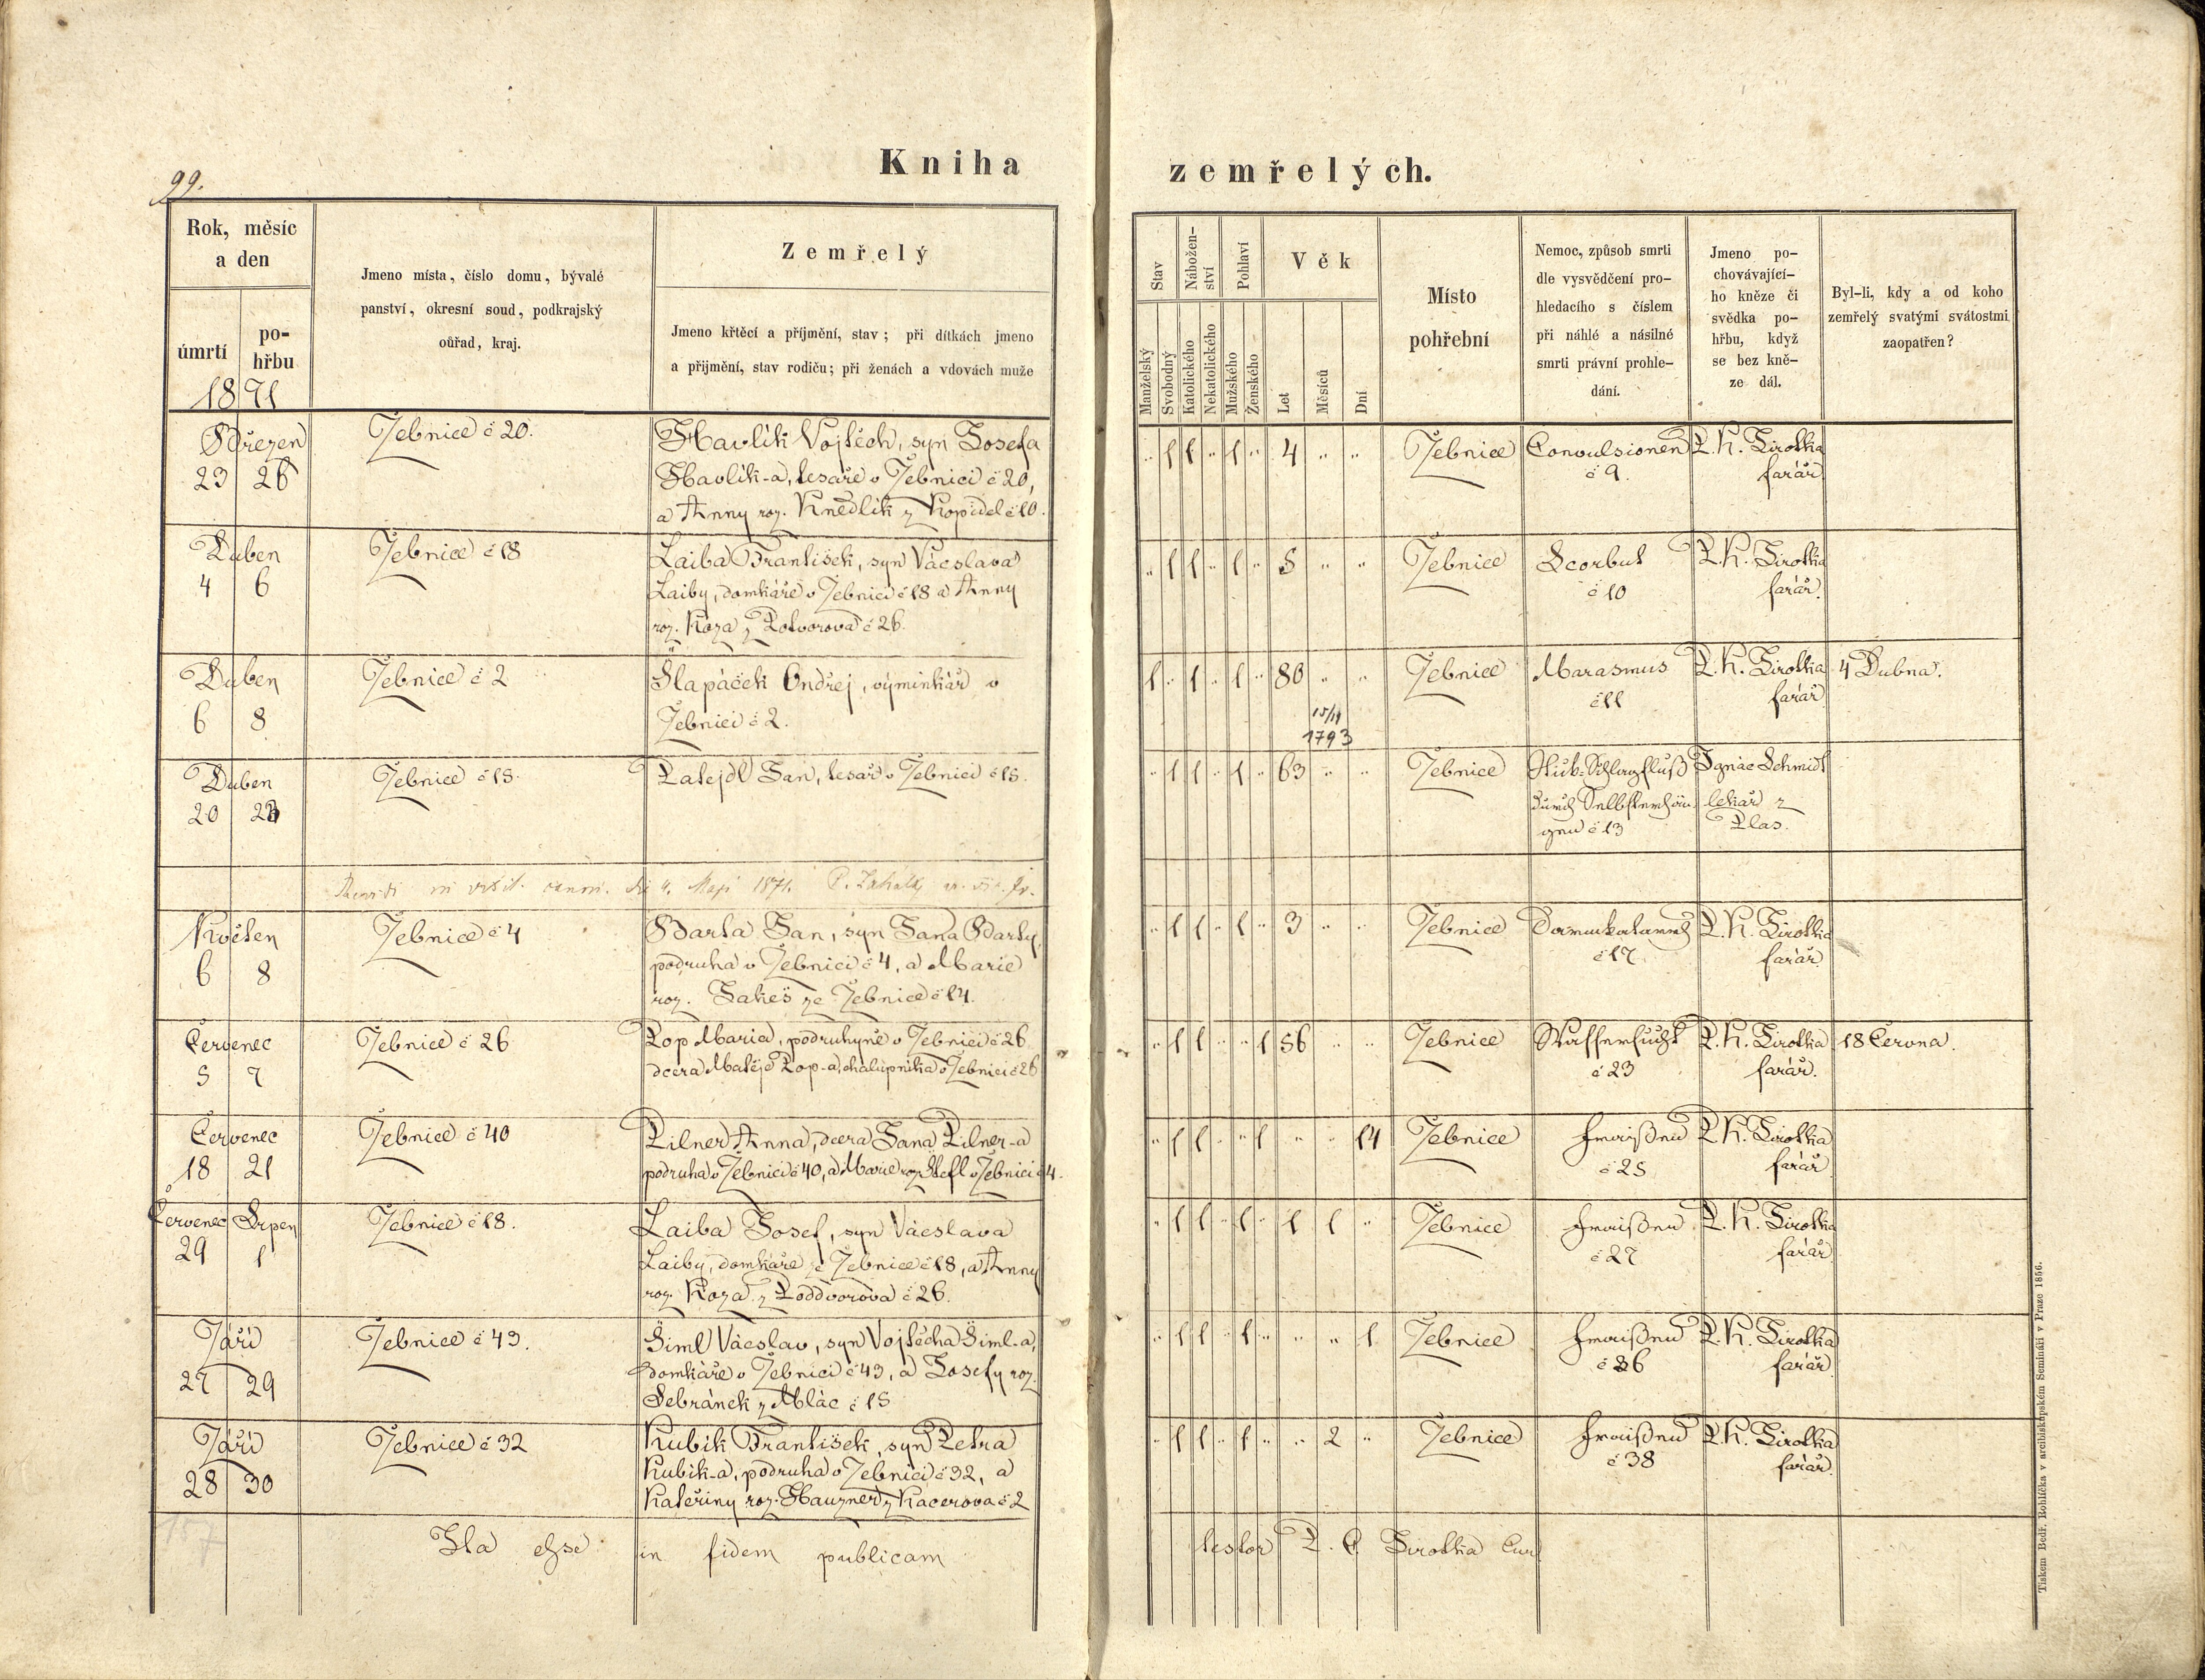 99.
Kniha zemřelých.
Rok, měsíc
a den
úmrtí
po-
hřbu
1871
Jmeno místa, číslo domu, bývalé
panství, okresní soud, podkrajský
ouřad, kraj.
Zemřelý
Jmeno křtěcí a příjmění, stav; při dítkách jmeno
a přijmění, stav rodičů; při ženách a vdovách muže
Stav
Manželský
Svobodný
Nábožen-
ství
Katolického
Nekatolického
Pohlaví
Mužského
Ženského
Věk
Let
Měsíců
Dní
Místo
pohřební
Nemoc, způsob smrti
dle vysvědčení pro-
hledacího s číslem
při náhlé a násilné
smrti právní prohle-
dání.
Jmeno po-
chovávající-
ho kněze či
svědka po-
hřbu, když
se bez kně-
ze dál.
Byl-li, kdy a od koho
zemřelý svatými svátostmi
zaopatřen?
Březen
23 26
Žebnice č 20.
Havlík Vojtěch, syn Josefa
Havlík-a, tesaře v Žebnici č 20,
a Anny roz. Knedlík z Kopidel č 10.
" 1 1 " 1 " 4 " "
Žebnice
Convulsionen
č 9.
P. K. Sirotka
farář
Duben
4 6
Žebnice č 18
Laiba František, syn Vácslava
Laiby, domkáře v Žebnici č 18 a Anny
roz. Koza z Potvorova č 26.
" 1 1 " 1 " 5 " "
Žebnice
Scorbut
č 10
P. K. Sirotka
farář.
Duben
6 8
Žebnice č 2
Šlapáček Ondřej, výminkář v
Žebnici č 2.
1 " 1 " 1 " 80 " "
15/11
1793
Žebnice
Marasmus
č 11
P. K. Sirotka
farář
4 Dubna.
Duben
20 23
Žebnice č 15.
Patejdl Jan, tesař v Žebnici č 15.
" 1 1 " 1 " 63 " "
Žebnice
Stick-Schlagfluß
durch Selbsterhän-
gen č 13
Ignác Schmidt
lekář z
Plas.
4. Maji 1871.
Květen
6 8
Žebnice č 4
Barta Jan, syn Jana Barty,
podruha v Žebnici č 4, a Marie
roz. Jakeš ze Žebnice č 14.
" 1 1 " 1 " 3 " "
Žebnice
č 17
P. K. Sirotka
farář
Červenec
5 7
Žebnice č 26
Pop Marie, podruhyně v Žebnici č 26
dcera Matěje Pop-a, chalupníka v Žebnici č 26
" 1 1 " " 1 56 " "
Žebnice
Wassersucht
č 23
P. K. Sirotka
farář.
18 Června.
Červenec
18 21
Žebnice č 40
Pilner Anna, dcera Jana Pilner-a
podruha v Žebnici č 40, a Marie roz. Štefl v Žebnici č 4.
" 1 1 " " 1 " " 14
Žebnice
Fraisen
č 25
P. K. Sirotka
farář
Červenec Srpen
29 1
Žebnice č 18.
Laiba Josef, syn Vácslava
Laiby, domkáře z Žebnice č 18, a Anny
roz. Koza z Poddvorova č 26.
" 1 1 " 1 " 1 1 "
Žebnice
Fraisen
č 27
P. K. Sirotka
farář
Září
27 29
Žebnice č 43.
Šiml Vácslav, syn Vojtěcha Šiml-a,
domkáře v Žebnici č 43, a Josefy roz.
Sebránek z Mlác č 15
" 1 1 " 1 " " " 1
Žebnice
Fraisen
č 36
P. K. Sirotka
farář
Září
28 30
Žebnice č 32
Kubík František, syn Petra
Kubík-a, podruha v Žebnici č 32, a
Kateřiny roz. Hauzner z Kacerova č 2
" 1 1 " 1 " " 2 "
Žebnice
Fraisen
č 38
P. K. Sirotka
farář.
Ita esse in fidem publicam testor P. C. Sirotka Cur
Tiskem Bedř. Rohlíčka v arcibiskupském Semináři v Praze 1856.